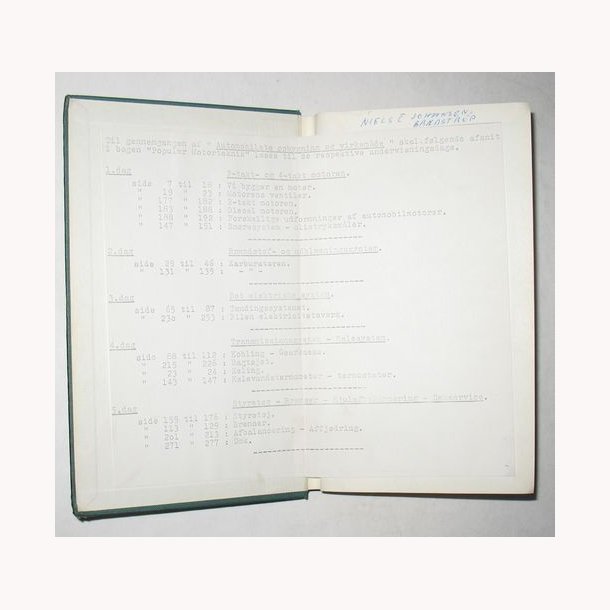 NIELS E JOHANSEN.
BRÆDSTRUP
Til gennemgangen af " Automobilets opbygning og virkemåde " skal følgende afsnit
i bogen "Populær Motorteknik" læses til de respektive undervisningsdage.
1.dag
2-takt- og 4-takt motoren.
side 7 til 18 : Vi bygger en motor.
" 19 " 23 : Motorens ventiler.
" 177 " 182 : 2-takt motoren.
" 183 " 188 : Diesel motoren.
" 188 " 192 : Forskellige udformninger af automobilmotorer.
" 147 " 151 : Smøresystem - olietryksmåler.
2.dag
Brændstof- og
side 29 til 46 : Karburatoren.
" 131 " 135 : - " -
3.dag
Det elektriske system.
side 65 til 87 : Tændingssystemet.
" 230 " 253 : Bilen elektricitetsværk.
4.dag
Transmissionssystem - Kølesystem.
side 88 til 112 : Kobling - Gearkasse.
" 215 " 226 : Bagtøjet.
" 23 " 24 : Køling.
" 143 " 147 : Kølevandstermometer - termostater.
5.dag
Styretøj - Bremser - Hjulafbalancering - Dækservice.
side 159 til 176 : Styretøj.
" 113 " 129 : Bremser.
" 201 " 213 : Afbalancering - Affjedring.
" 271 " 277 : Dæk.